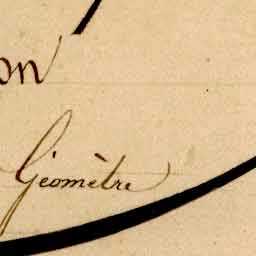 on
Géomètre